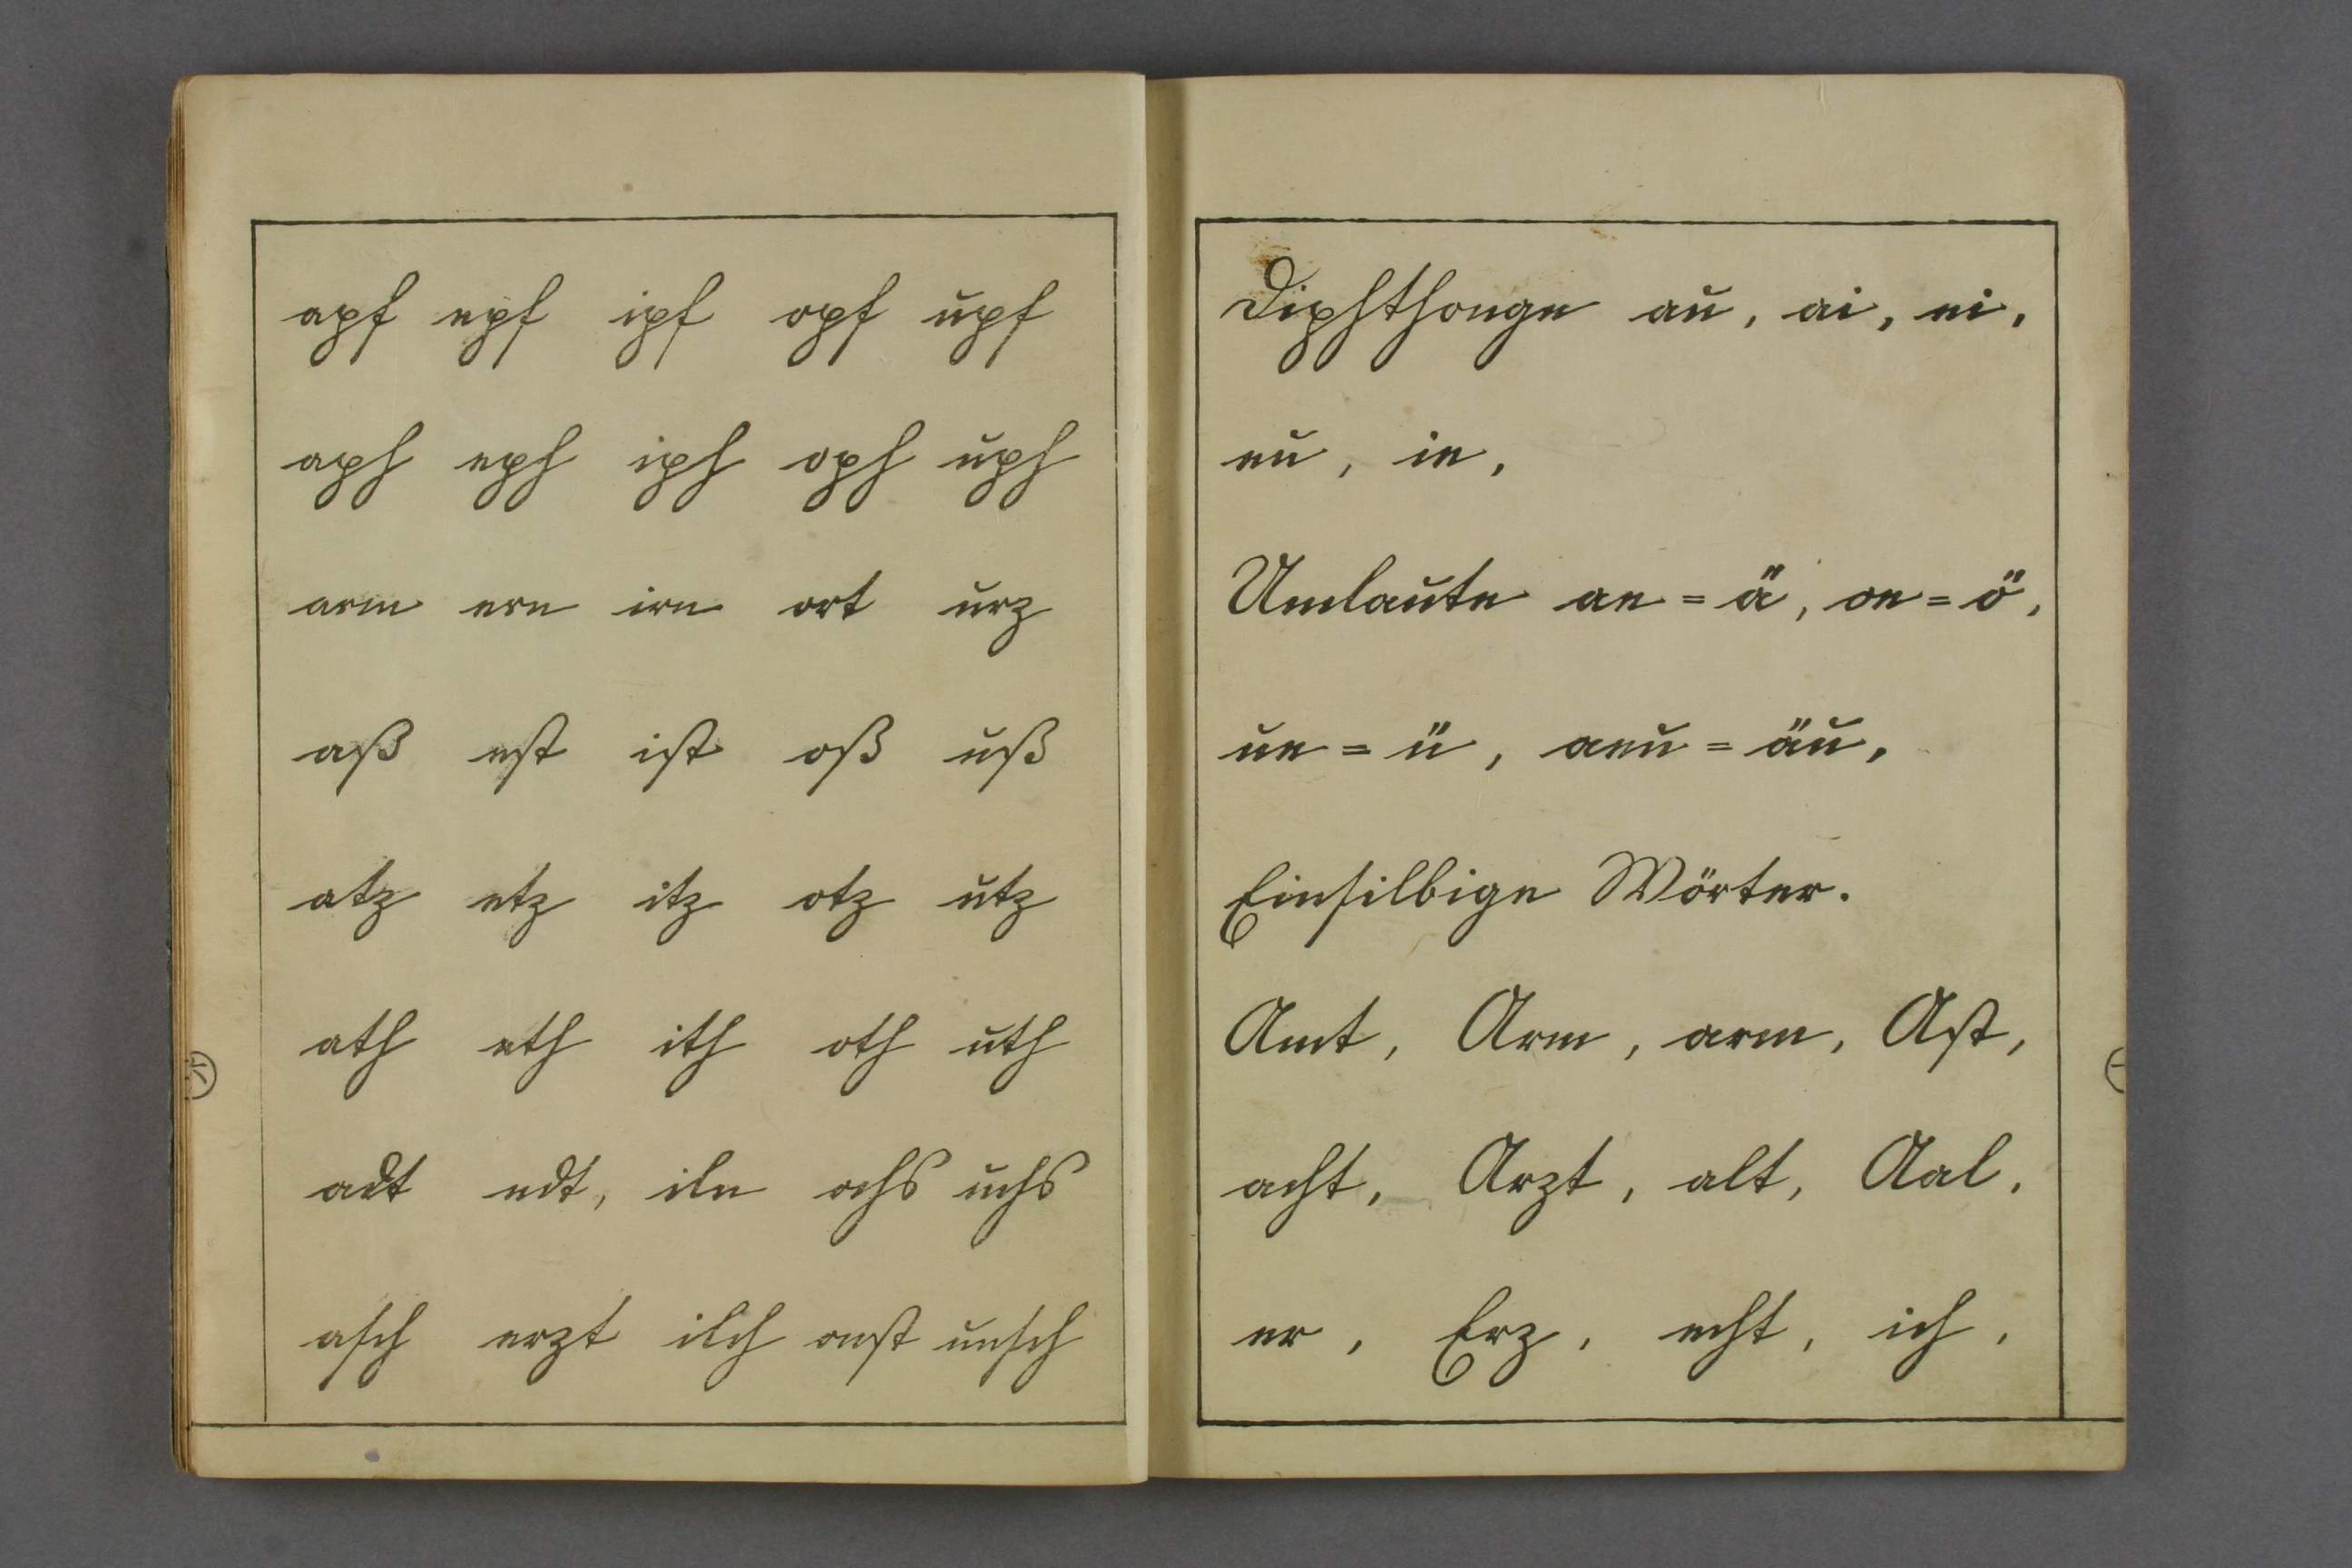 apf epf ipf opf upf
aph eph iph oph uph
arm ern irn ort urz
aß est ist oß uß
atz etz itz otz utz
ath eth ith oth uth
adt edt, iln ochs uchs
asch erzt ilch onst unsch
Diphthonge au, ai, ei,
eu, ie,
Umlaute ae = ä, oe = ö,
ue = ü, aeu = äu,
Einsilbige Wörter.
Amt, Arm, arm, Ast,
acht, Arzt, alt, Aal,
er, Erz, echt, ich,